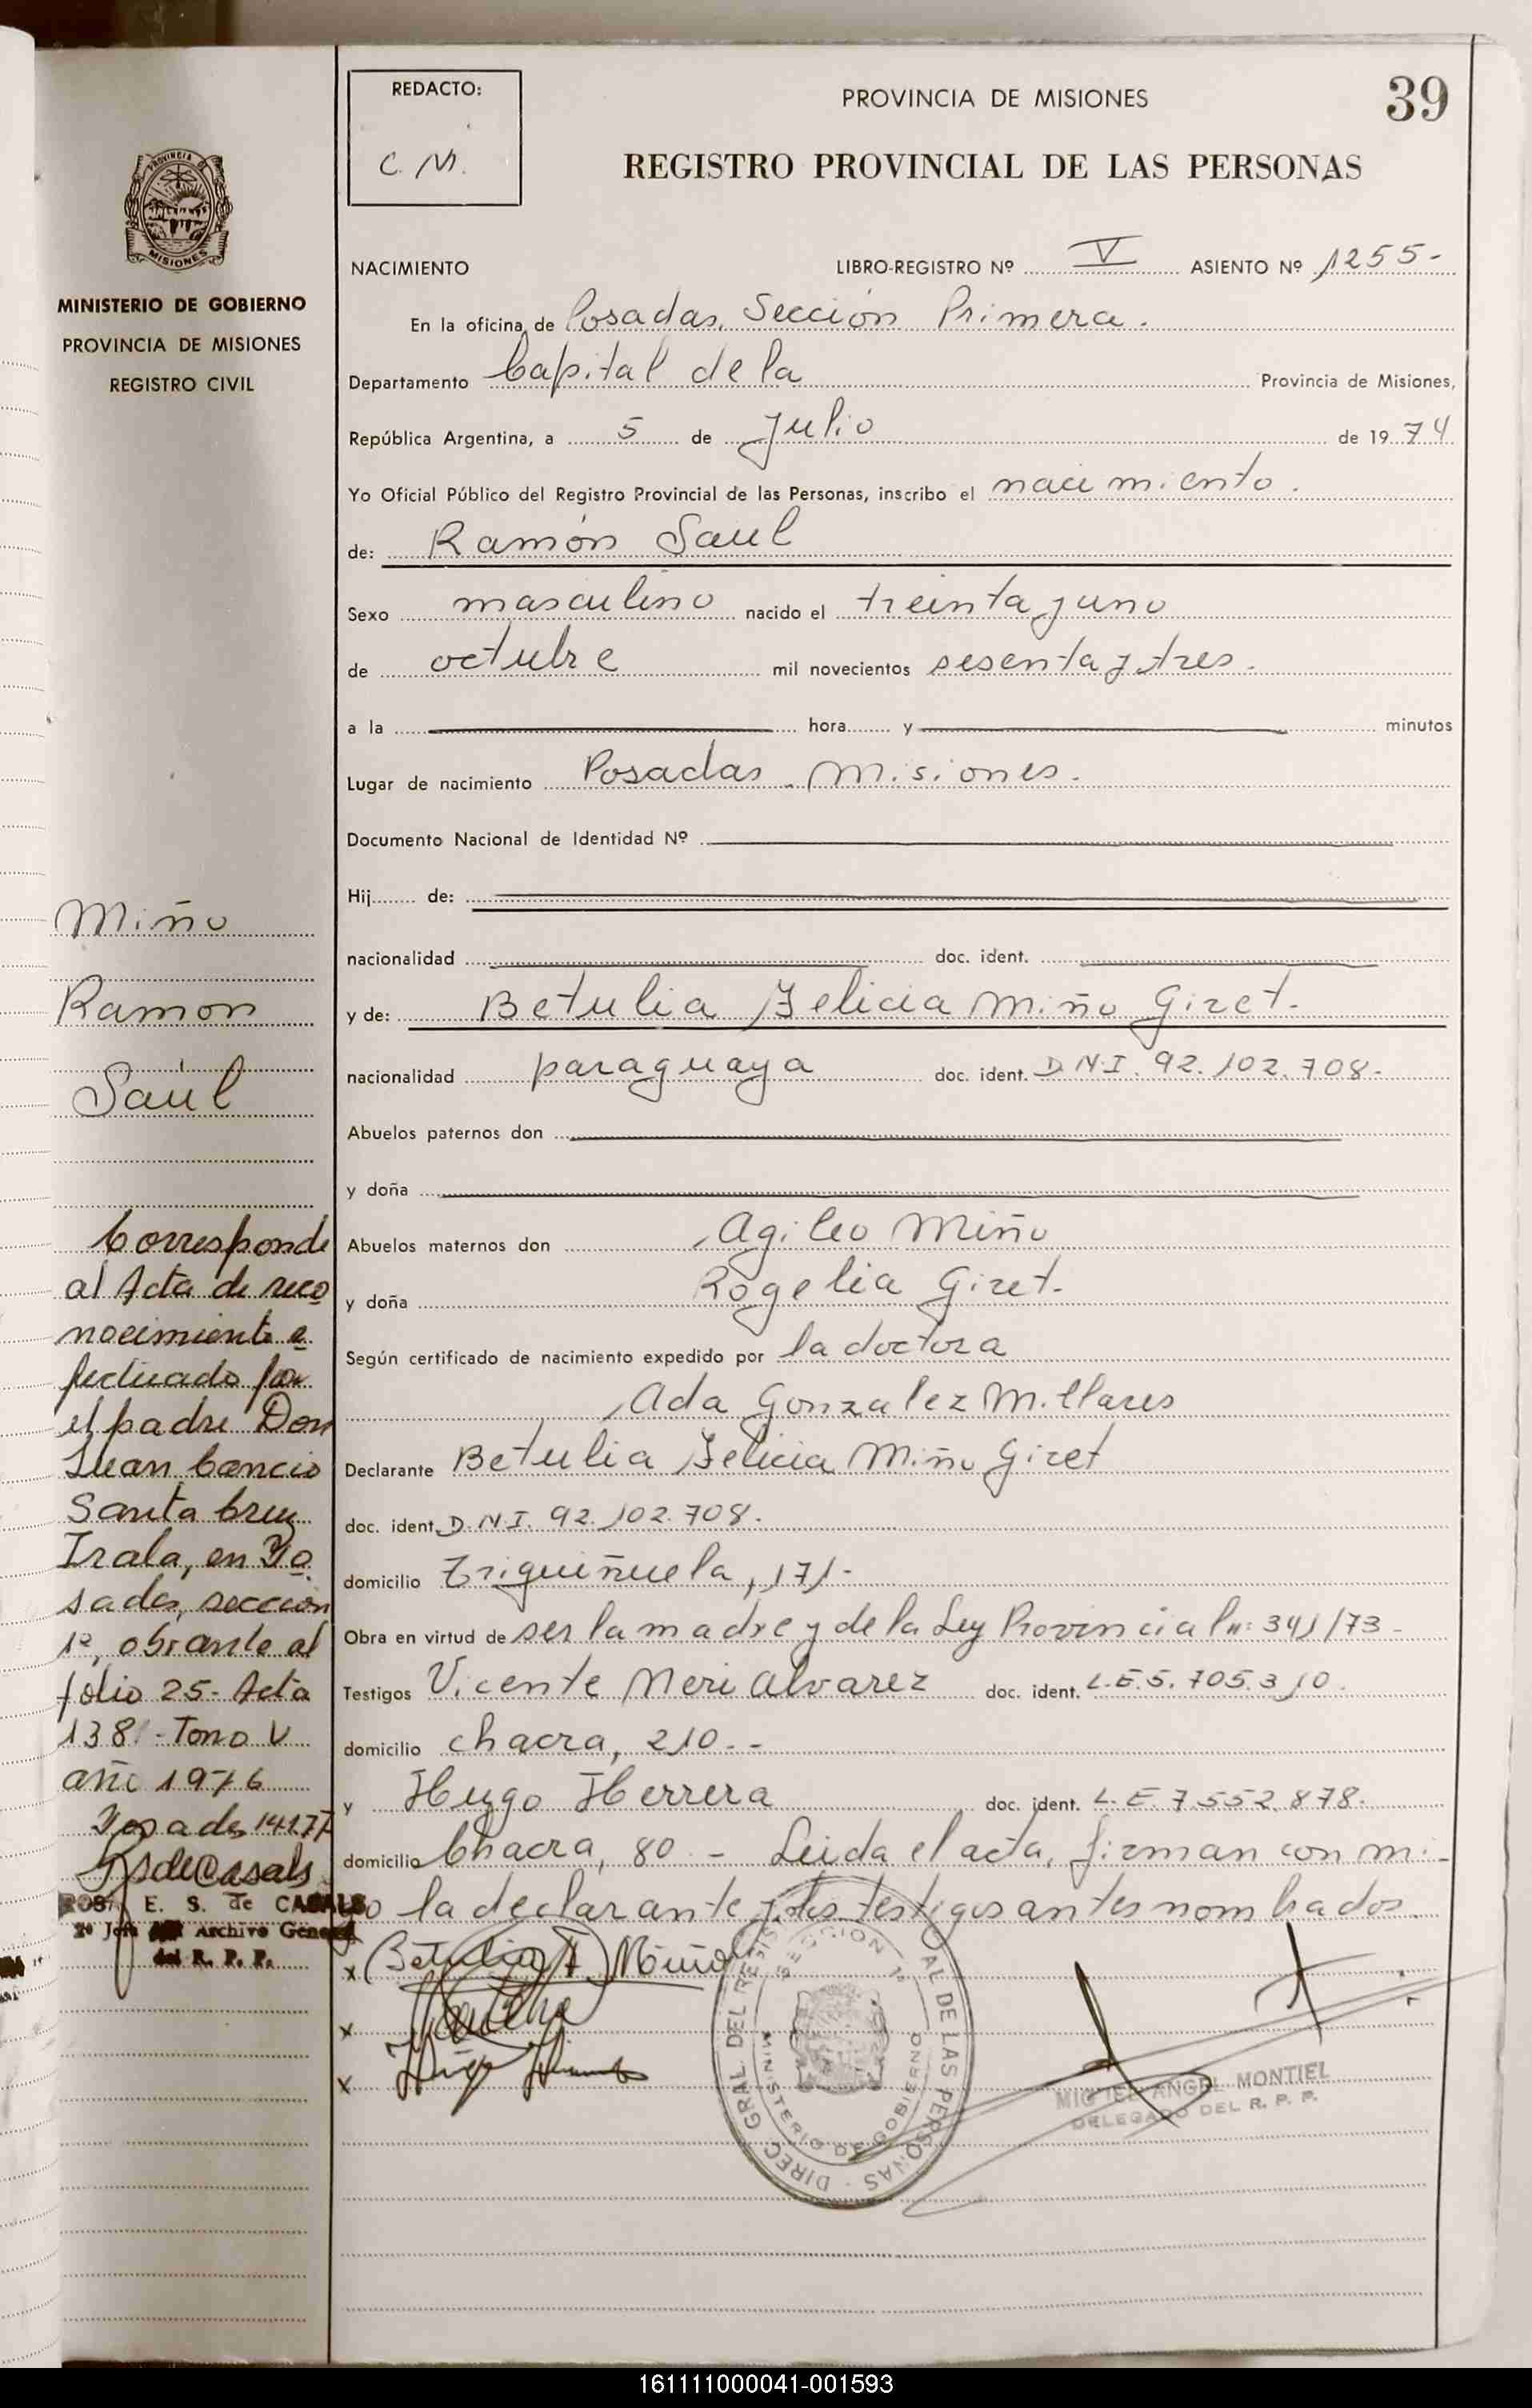 REDACTO:
C. M.
PROVINCIA DE MISIONES
39
REGISTRO PROVINCIAL DE LAS PERSONAS
NACIMIENTO LIBRO-REGISTRO Nº V ASIENTO Nº 1255-
En la oficina de Posadas, Sección Primera.
Departamento Capital de la Provincia de Misiones,
República Argentina, a 5 de Julio de 1974
Yo Oficial Público del Registro Provincial de las Personas, inscribo el nacimiento.
de: Ramón Saúl
Sexo masculino nacido el treinta y uno
de octubre mil novecientos sesenta y tres.
a la hora y minutos
Lugar de nacimiento Posadas. Misiones.
Documento Nacional de Identidad Nº
Hij de:
nacionalidad doc. ident.
y de: Betulia Felicia Miño Giret.
nacionalidad paraguaya doc. ident. D.N.I. 92.102.708-
Abuelos paternos don
y doña
Abuelos maternos don Agileo Miño
y doña Rogelia Giret.
Según certificado de nacimiento expedido por la doctora
Ada Gonzalez Millares
Declarante Betulia Felicia Miño Giret
doc. ident. D.N.I. 92.102.708.
domicilio Triguiñuela, 171-
Obra en virtud de ser la madre y de la Ley Provincial nº: 341/73-
Testigos Vicente Neri Alvarez doc. ident. L.E.5.705.310.
domicilio chacra, 210.--
y Hugo Herrera doc. ident. L.E.7.552.878.
domicilio Chacra, 80.- Leida el acta, firman con mi-
go la declarante y los testigos antes nombrados.
x Betulia F Miño
x
x
DIREC. GRAL DEL REGIST AL DE LAS PERSONAS
SECCION 1ª
MINISTERIO DE GOBIERNO
MIGUEL ANGEL MONTIEL
DELEGADO DEL R. P. P.
PROVINCIA DE
MISIONES
MINISTERIO DE GOBIERNO
PROVINCIA DE MISIONES
REGISTRO CIVIL
Miño
Ramon
Saúl
Corresponde
al Acta de reco
nocimiento e
fectuado por
el padre Don
Juan Cancio
Santa Cruz
Irala, en Po
sadas, sección
1ª, obrante al
folio 25- Acta
138- Tomo V
año 1976
Posadas 14177
E. S. de CASALS
2º Jefe Archivo General
del R. P. P.
161111000041-001593